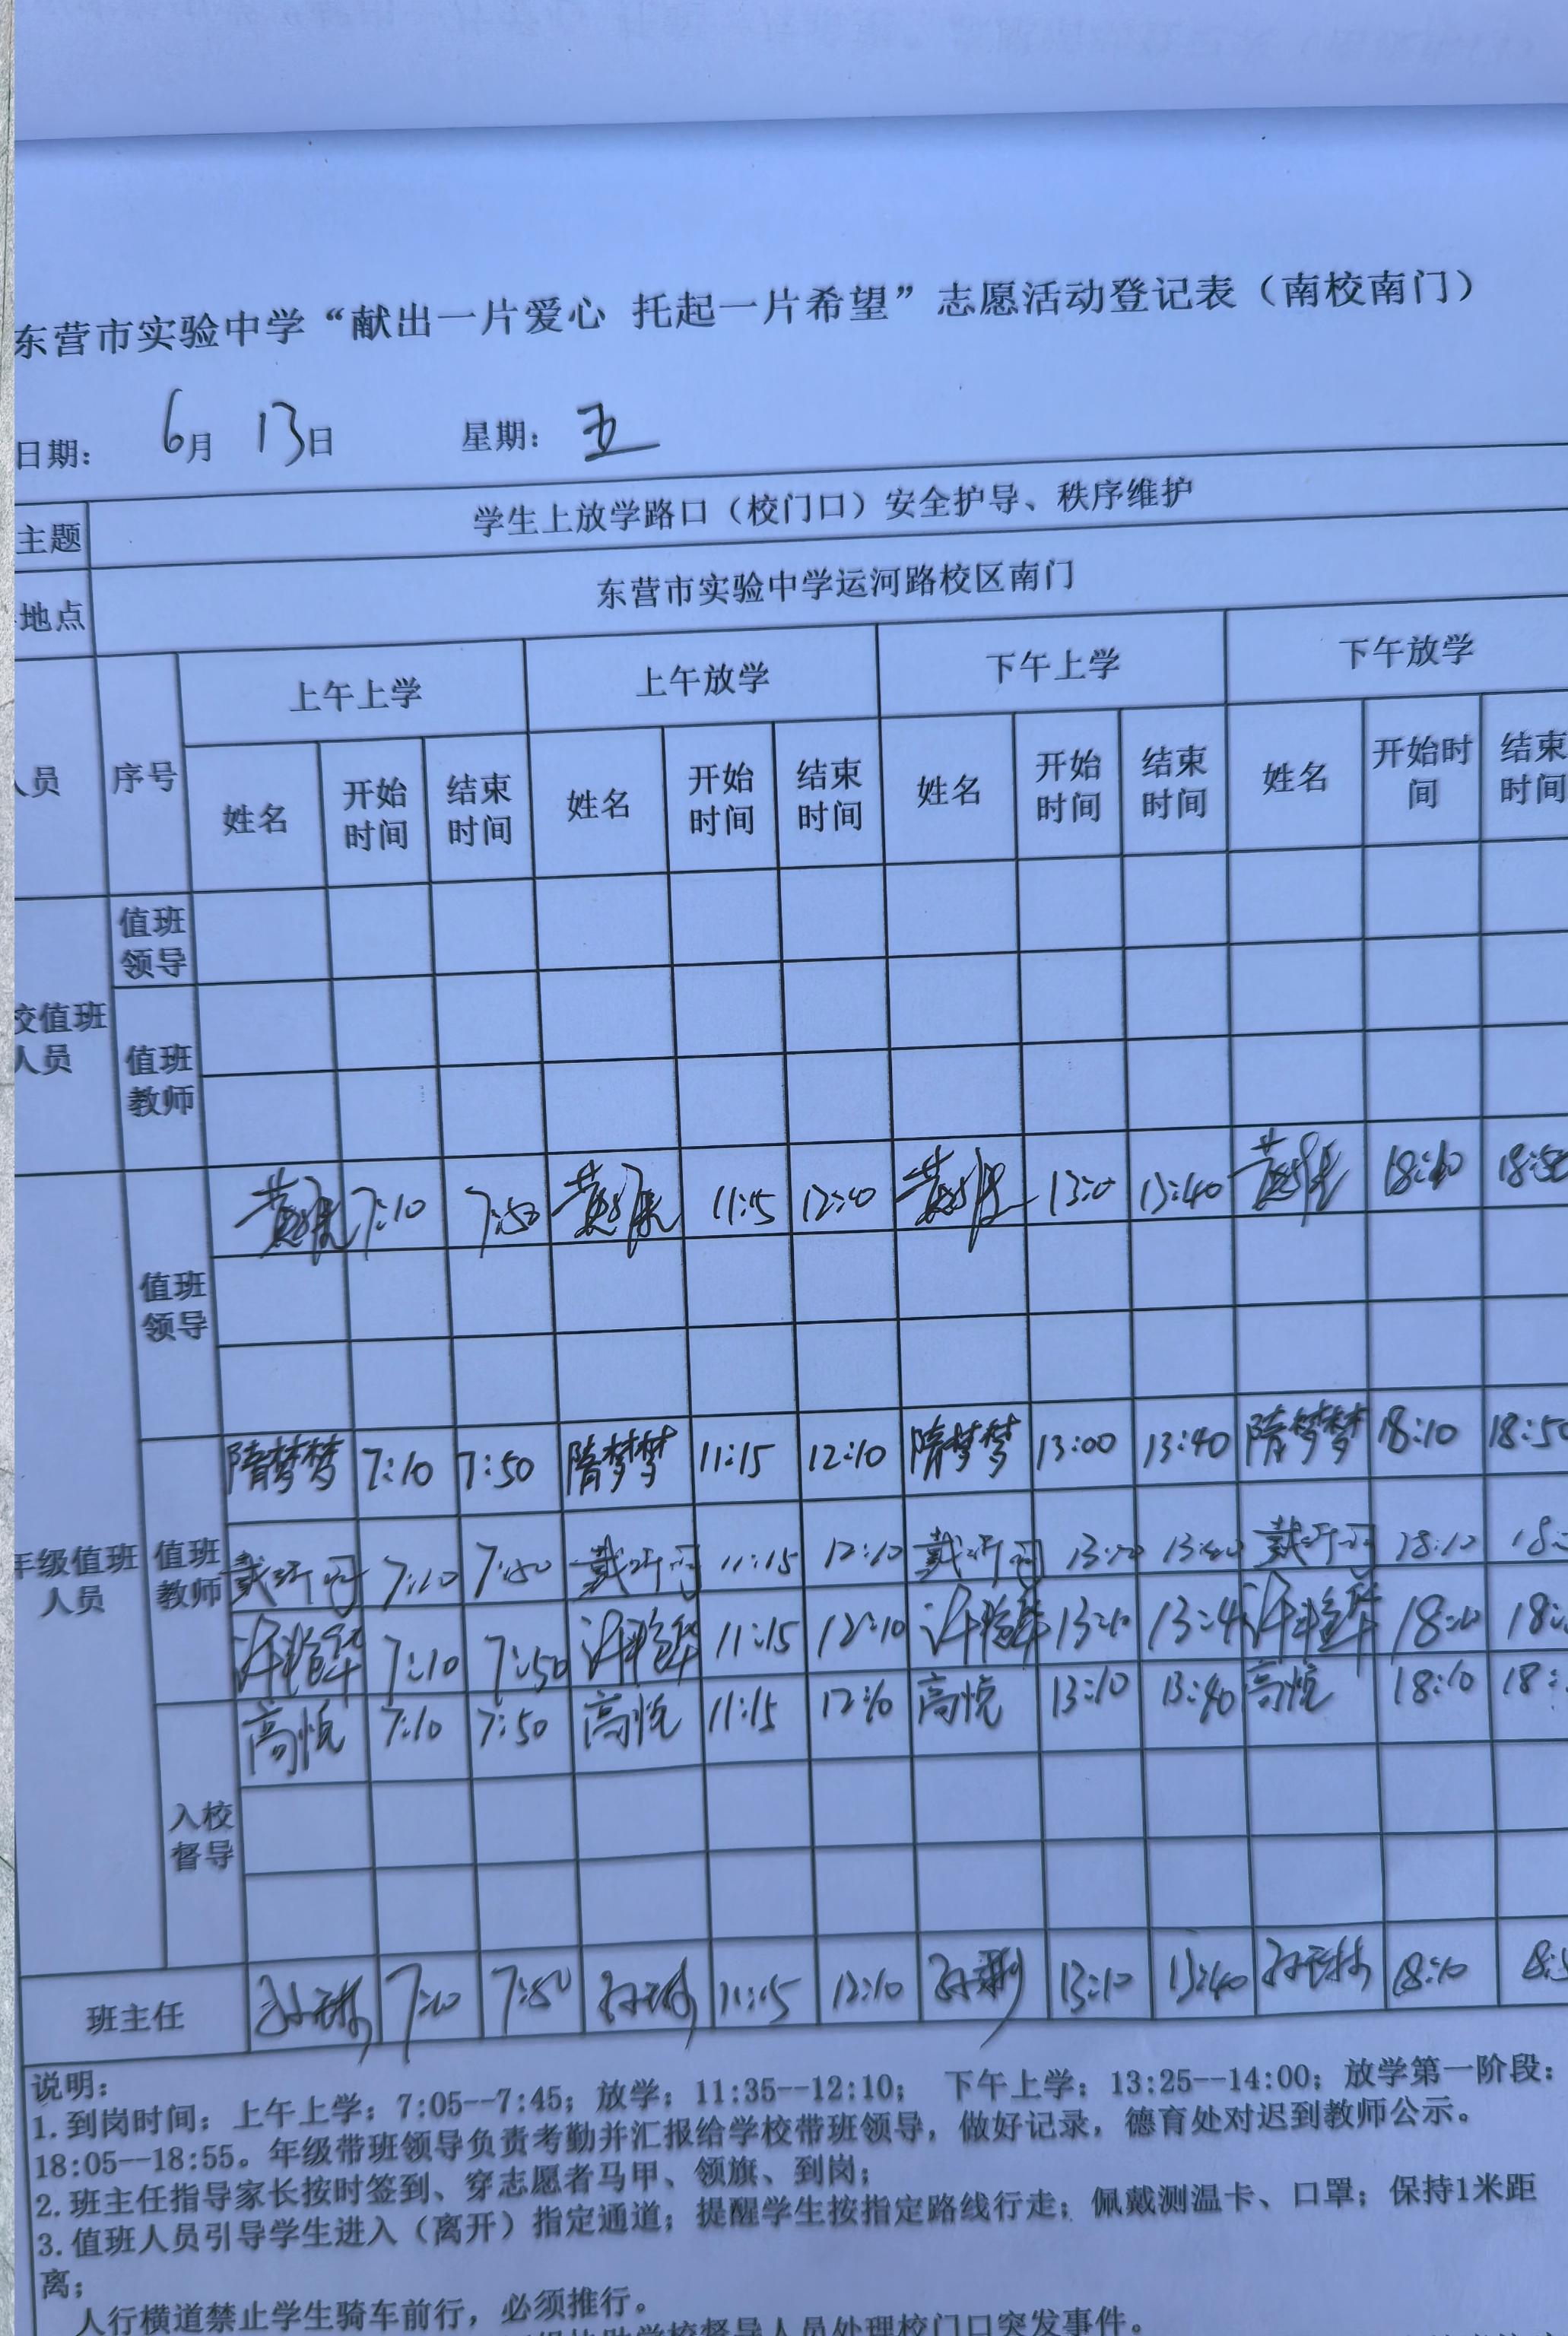 东营市实验中学“献出一片爱心 托起一片希望”志愿活动登记表（南校南门）
日期： 6月 13日 星期： 五
主题 学生上放学路口（校门口）安全护导、秩序维护
地点 东营市实验中学运河路校区南门
人员 序号 上午上学 上午放学 下午上学 下午放学
姓名 开始时间 结束时间 姓名 开始时间 结束时间 姓名 开始时间 结束时间 姓名 开始时间 结束时间
校值班人员 值班领导
值班教师
年级值班人员 值班领导 7:10 7:50 11:15 12:10 13:10 13:40 18:10 18:50
值班教师 隋梦梦 7:10 7:50 隋梦梦 11:15 12:10 隋梦梦 13:00 13:40 隋梦梦 18:10 18:50
戴 7:10 7:50 戴 11:15 12:10 戴 13:10 13:40 戴 18:10 18:
许 7:10 7:50 许 11:15 12:10 许 13:10 13:4 许 18:10 18:
入校督导 高悦 7:10 7:50 高悦 11:15 12:10 高悦 13:10 13:40 高悦 18:10 18:
班主任 孙 7:10 7:50 孙 11:15 12:10 孙 13:10 13:40 孙 18:10 18:5
说明：
1.到岗时间：上午上学：7:05--7:45；放学：11:35--12:10； 下午上学：13:25--14:00；放学第一阶段：
18:05--18:55。年级带班领导负责考勤并汇报给学校带班领导，做好记录，德育处对迟到教师公示。
2.班主任指导家长按时签到、穿志愿者马甲、领旗、到岗；
3.值班人员引导学生进入（离开）指定通道；提醒学生按指定路线行走；佩戴测温卡、口罩；保持1米距
离；
人行横道禁止学生骑车前行，必须推行。
协助学校督导人员处理校门口突发事件。